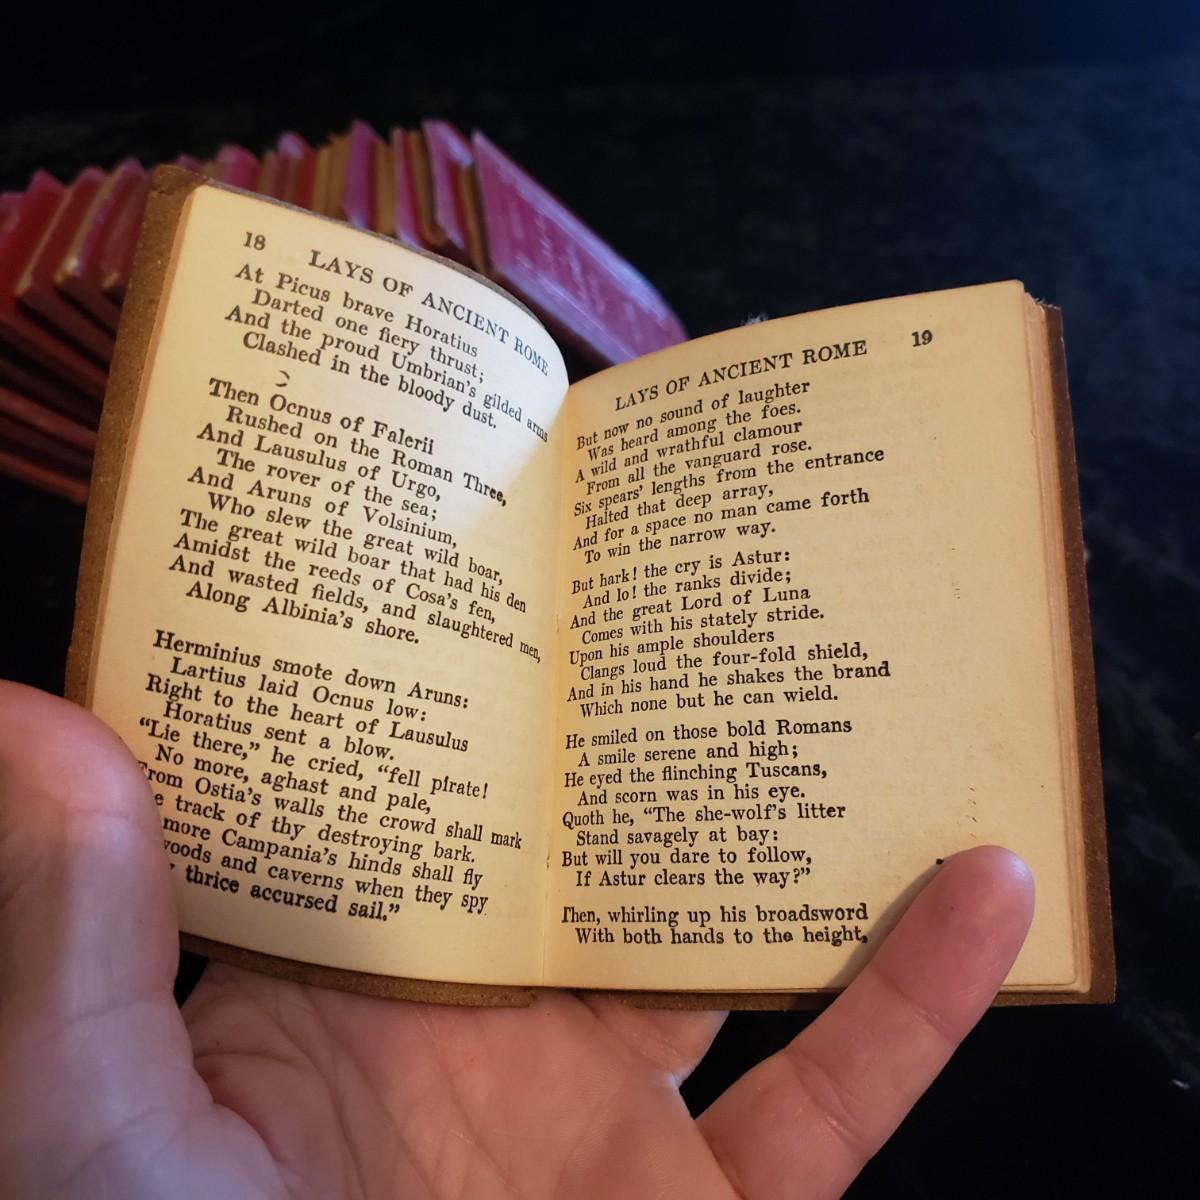 18 LAYS OF ANCIENT ROME
At Picus brave Horatius
Darted one fiery thrust;
And the proud Umbrian's gilded arms
Clashed in the bloody dust.
Then Ocnus of Falerii
Rushed on the Roman Three,
And Lausulus of Urgo,
The rover of the sea;
And Aruns of Volsinium,
Who slew the great wild boar,
The great wild boar that had his den
Amidst the reeds of Cosa's fen,
And wasted fields, and slaughtered men,
Along Albinia's shore.
Herminius smote down Aruns:
Lartius laid Ocnus low:
Right to the heart of Lausulus
Horatius sent a blow.
"Lie there," he cried, "fell pirate!
No more, aghast and pale,
From Ostia's walls the crowd shall mark
e track of thy destroying bark.
more Campania's hinds shall fly
woods and caverns when they spy
thrice accursed sail."
LAYS OF ANCIENT ROME 19
But now no sound of laughter
Was heard among the foes.
A wild and wrathful clamour
From all the vanguard rose.
Six spears' lengths from the entrance
Halted that deep array,
And for a space no man came forth
To win the narrow way.
But hark! the cry is Astur:
And lo! the ranks divide;
And the great Lord of Luna
Comes with his stately stride.
Upon his ample shoulders
Clangs loud the four-fold shield,
And in his hand he shakes the brand
Which none but he can wield.
He smiled on those bold Romans
A smile serene and high;
He eyed the flinching Tuscans,
And scorn was in his eye.
Quoth he, "The she-wolf's litter
Stand savagely at bay:
But will you dare to follow,
If Astur clears the way?"
Then, whirling up his broadsword
With both hands to the height,